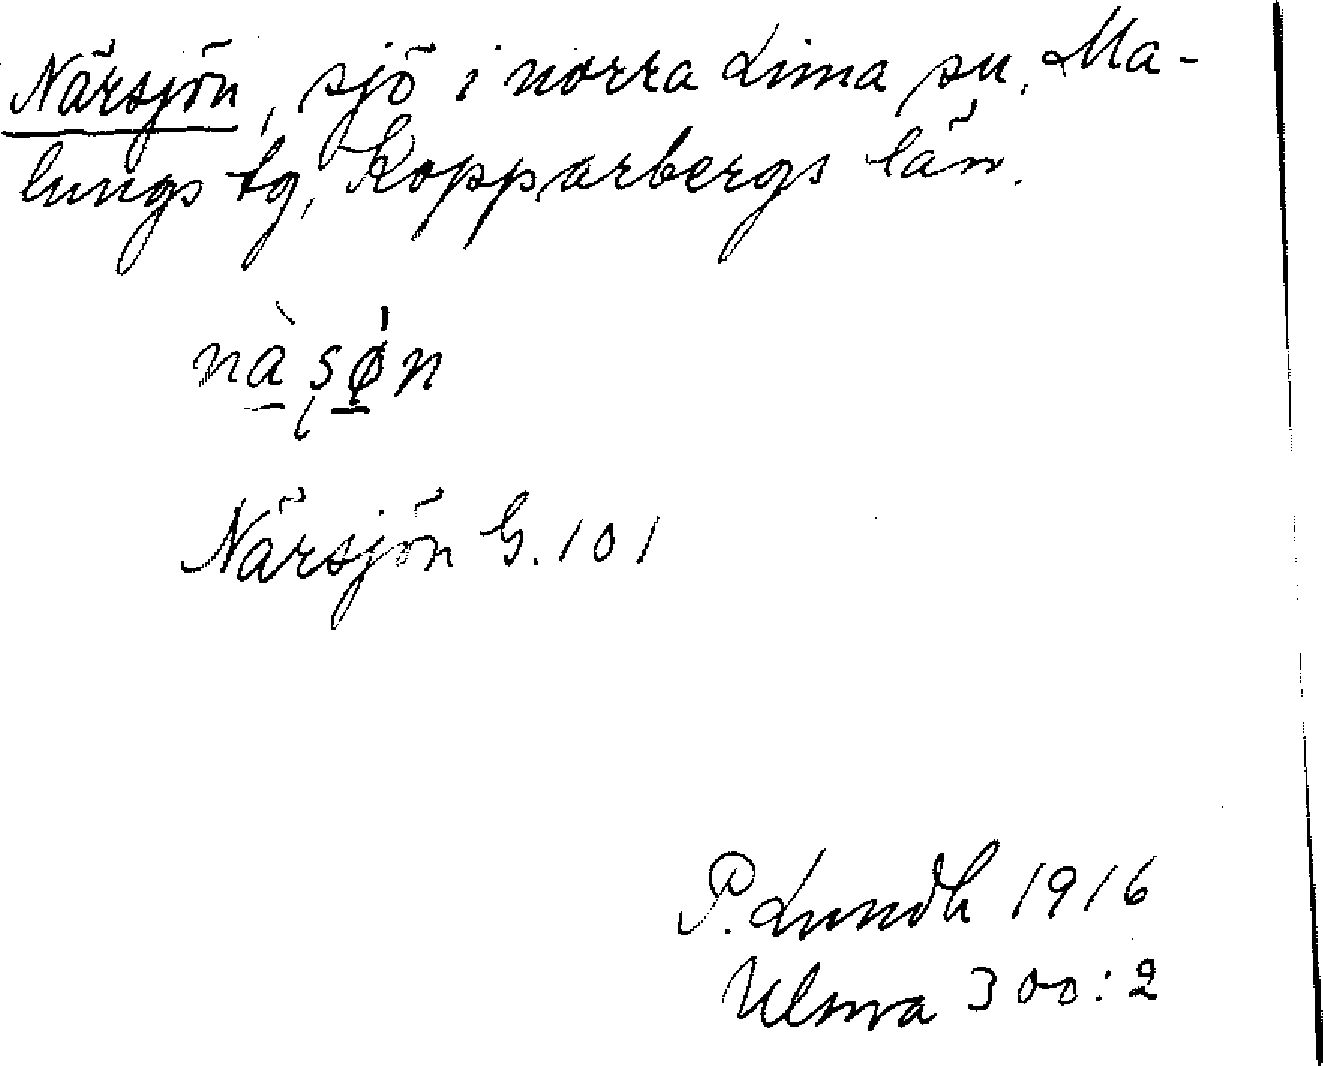 Närsjön, sjö i norra Lima sn, Ma-
lungs tg, Kopparbergs län.
Närsjön G. 101
P. Lundh 1916
Ulma 300:2